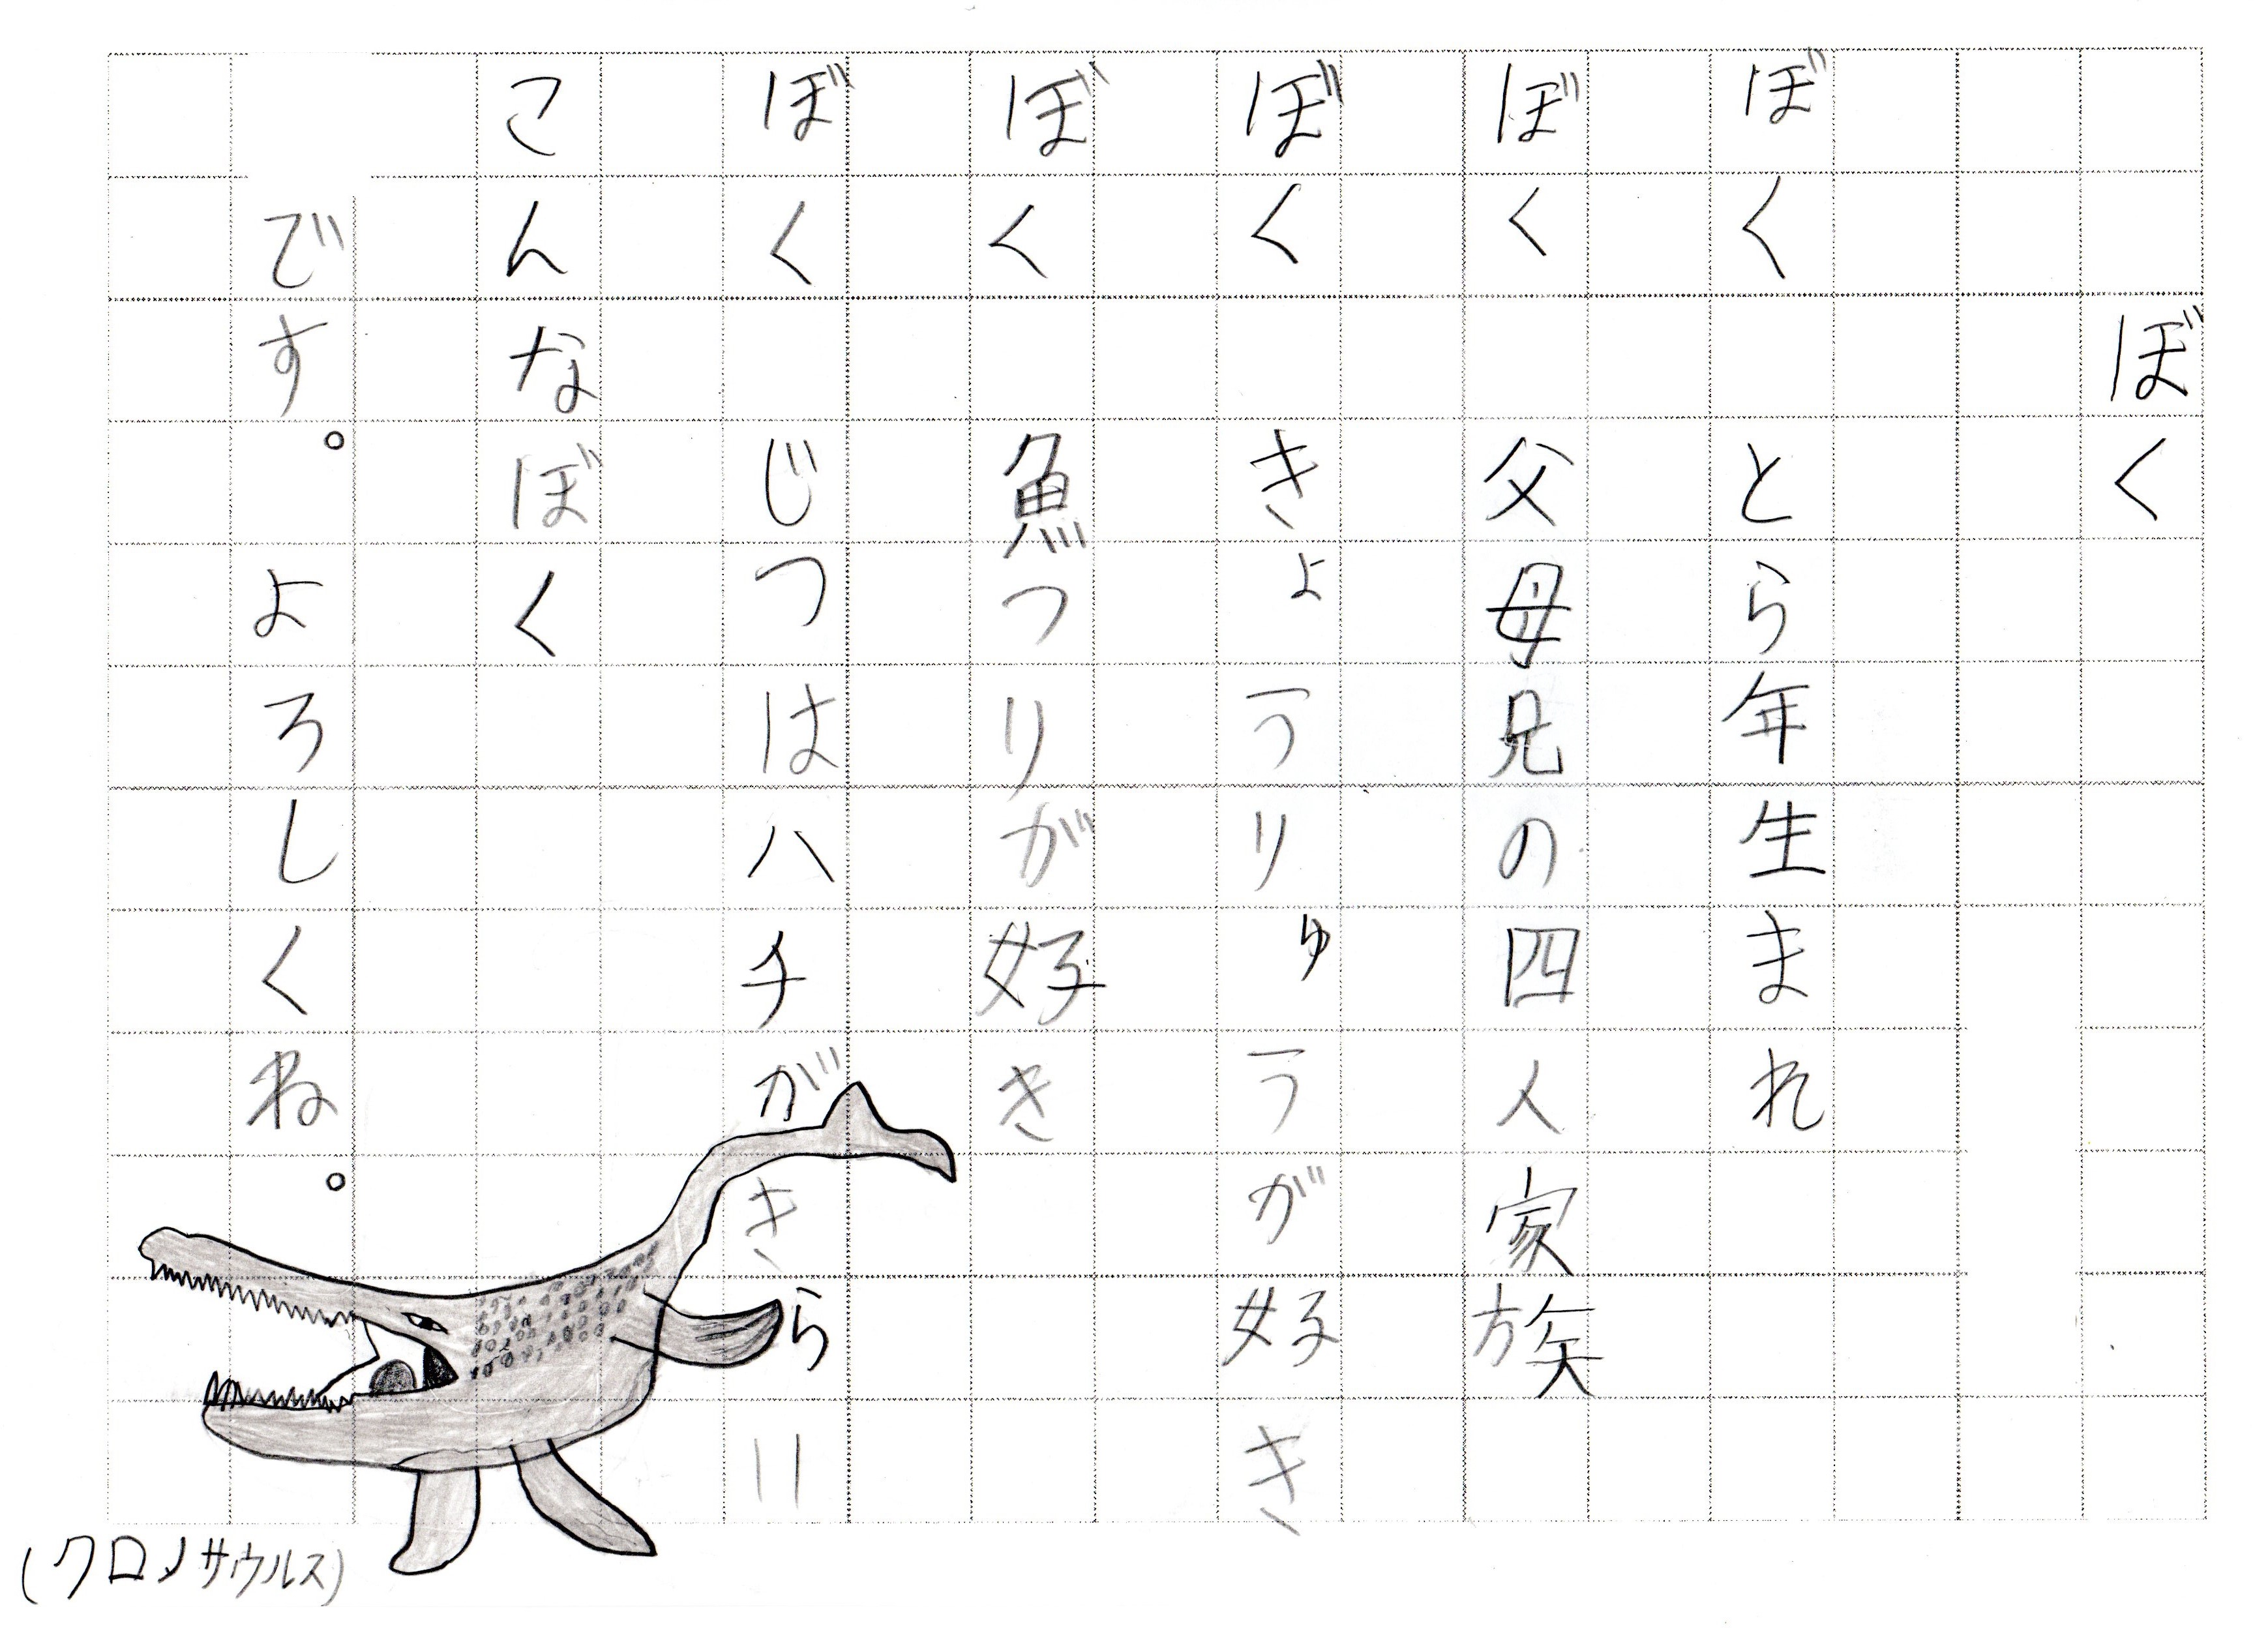 ぼく
ぼく　とら年生まれ
ぼく　父母兄の四人家族
ぼく　きょうりゅうが好き
ぼく　魚つりが好き
ぼく　じつはハチがきらい
こんなぼく
です。よろしくね。
(クロノサウルス)